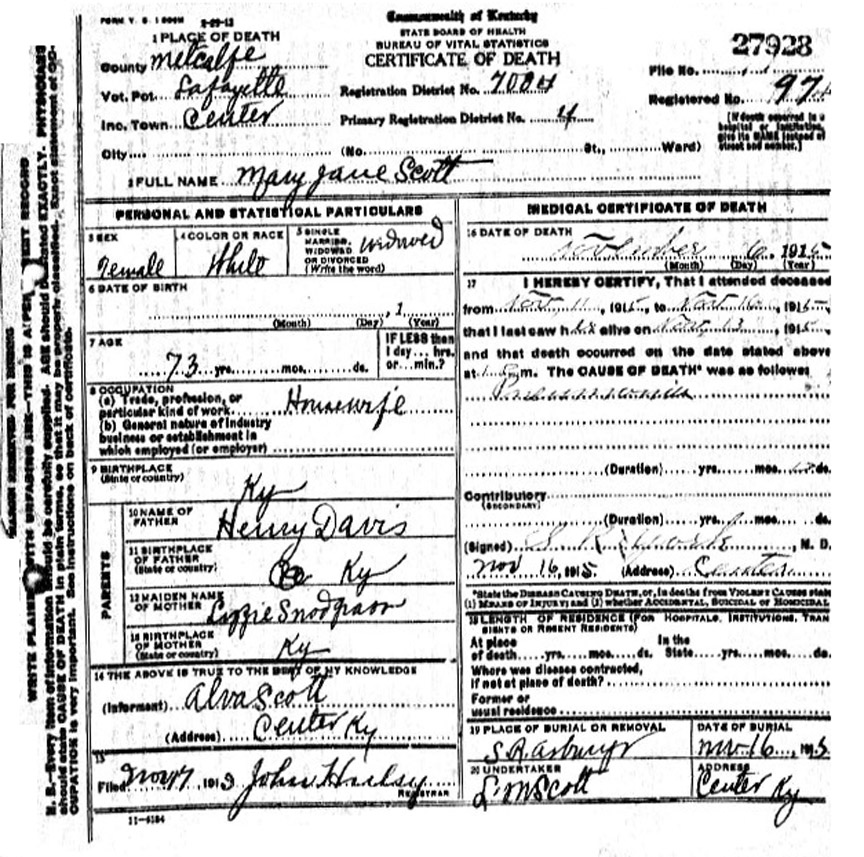 FORM V. S. 1 500M 2-20-12
Commonwealth of Kentucky
STATE BOARD OF HEALTH
BUREAU OF VITAL STATISTICS
CERTIFICATE OF DEATH
27928
1 PLACE OF DEATH
County Metcalfe
Vot. Pct. Lafayette
Inc. Town Center
City
Registration District No. 7004
Primary Registration District No. 4
File No.
Registered No. 974
(No. St., Ward)
[If death occurred in a hospital or institution, give its NAME instead of street and number.]
2 FULL NAME Mary Jane Scott
PERSONAL AND STATISTICAL PARTICULARS
3 SEX
Female
4 COLOR OR RACE
White
5 SINGLE MARRIED, WIDOWED OR DIVORCED (Write the word)
widowed
6 DATE OF BIRTH
, 1
(Month) (Day) (Year)
7 AGE
73 yrs. mos. ds.
IF LESS than 1 day... hrs. or... min.?
8 OCCUPATION
(a) Trade, profession, or particular kind of work Housewife
(b) General nature of industry business or establishment in which employed (or employer)
9 BIRTHPLACE
(State or country)
Ky
PARENTS
10 NAME OF FATHER
Henry Davis
11 BIRTHPLACE OF FATHER
(State or country)
Ky
12 MAIDEN NAME OF MOTHER
Lizzie Snodgrass
13 BIRTHPLACE OF MOTHER
(State or country)
Ky
14 THE ABOVE IS TRUE TO THE BEST OF MY KNOWLEDGE
(Informant) Alva Scott
(Address) Center Ky
15
Filed Nov 17, 1913 John
REGISTRAR
11-6184
MEDICAL CERTIFICATE OF DEATH
16 DATE OF DEATH
November 1915
(Month) (Day) (Year)
17 I HEREBY CERTIFY, That I attended deceased
from Nov. 11, 1915, to Nov. 16, 1915,
that I last saw her alive on Nov. 13, 1915,
and that death occurred on the date stated above
at m. The CAUSE OF DEATH* was as follows:
(Duration) yrs. mos. ds.
Contributory
(SECONDARY)
(Duration) yrs. mos. ds.
(Signed) S. R. , M. D.
Nov 16, 1915 (Address) Center
*State the DISEASE CAUSING DEATH, or, in deaths from VIOLENT CAUSES state
(1) MEANS OF INJURY; and (2) whether ACCIDENTAL, SUICIDAL OR HOMICIDAL
18 LENGTH OF RESIDENCE (FOR HOSPITALS, INSTITUTIONS, TRAN
SIENTS OR RECENT RESIDENTS)
At place of death yrs. mos. ds.
In the State yrs. mos. ds.
Where was disease contracted, if not at place of death?
Former or usual residence
19 PLACE OF BURIAL OR REMOVAL
S R Asbury
DATE OF BURIAL
Nov 16, 1915
20 UNDERTAKER
L. M Scott
ADDRESS
Center Ky
MARGIN RESERVED FOR BINDING
WRITE PLAINLY WITH UNFADING INK—THIS IS A RECORD
N. B.—Every item of information should be carefully supplied. AGE should be stated EXACTLY. PHYSICIANS
should state CAUSE OF DEATH in plain terms, so that it may be properly classified. Exact statement of OC-
CUPATION is very important. See instructions on back of certificate.